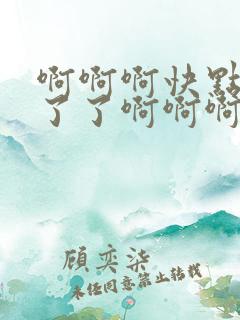 啊啊啊快點
了了啊啊啊
顧奕柒
未经同意禁止转载